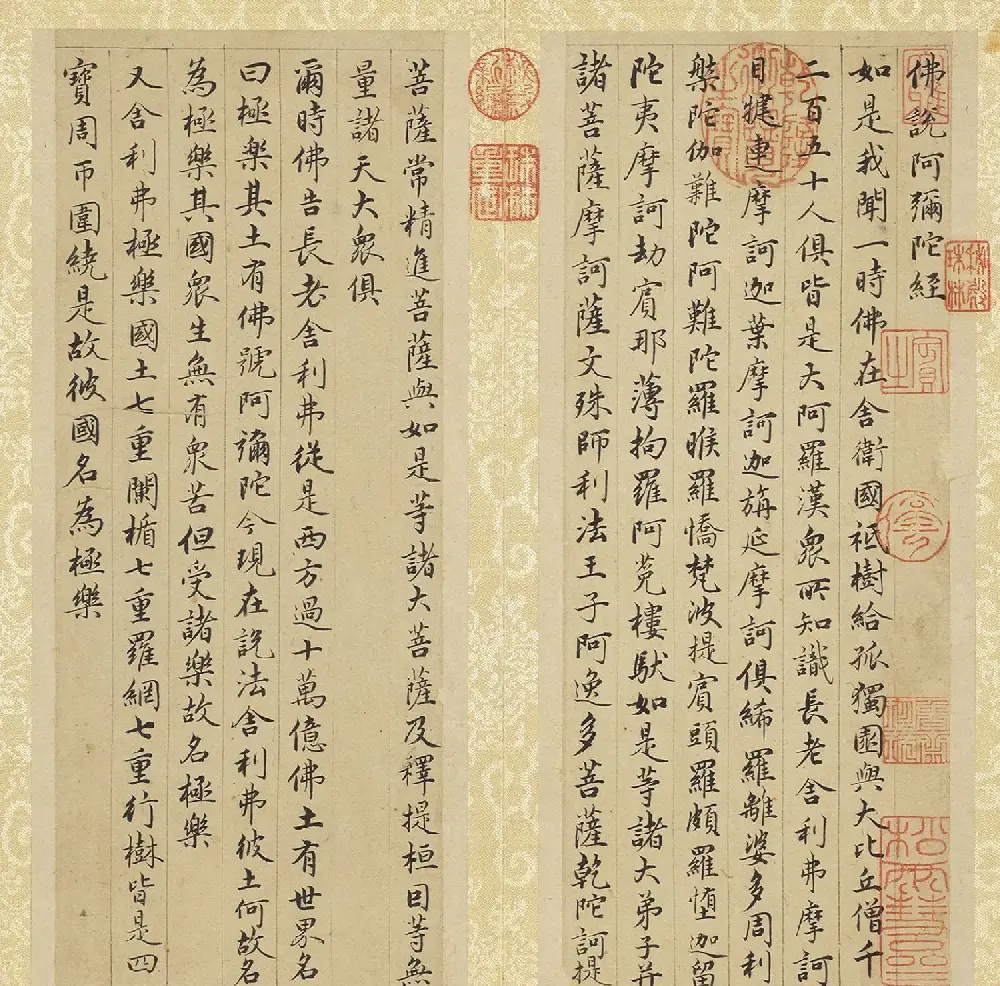 佛說阿彌陀経
如是我聞一時佛在舍衛國祇樹給孤獨園與大比丘僧千
二百五十人俱皆是大阿羅漢衆所知識長老舍利弗摩訶
目揵連摩訶迦葉摩訶迦旃延摩訶俱絺羅離婆多周利
槃陀伽難陀阿難陀羅睺羅憍梵波提賓頭羅頗羅墮迦留
陀夷摩訶劫賓那薄拘羅阿㝹樓馱如是等諸大弟子并
諸菩薩摩訶薩文殊師利法王子阿逸多菩薩乾陀訶提
菩薩常精進菩薩與如是等諸大菩薩及釋提桓因等無
量諸天大衆俱
爾時佛告長老舍利弗從是西方過十萬億佛土有世界名
曰極樂其土有佛號阿彌陀今現在說法舍利弗彼土何故名
為極樂其國衆生無有衆苦但受諸樂故名極樂
又舍利弗極樂國土七重闌楯七重羅網七重行樹皆是四
寶周帀圍繞是故彼國名為極樂